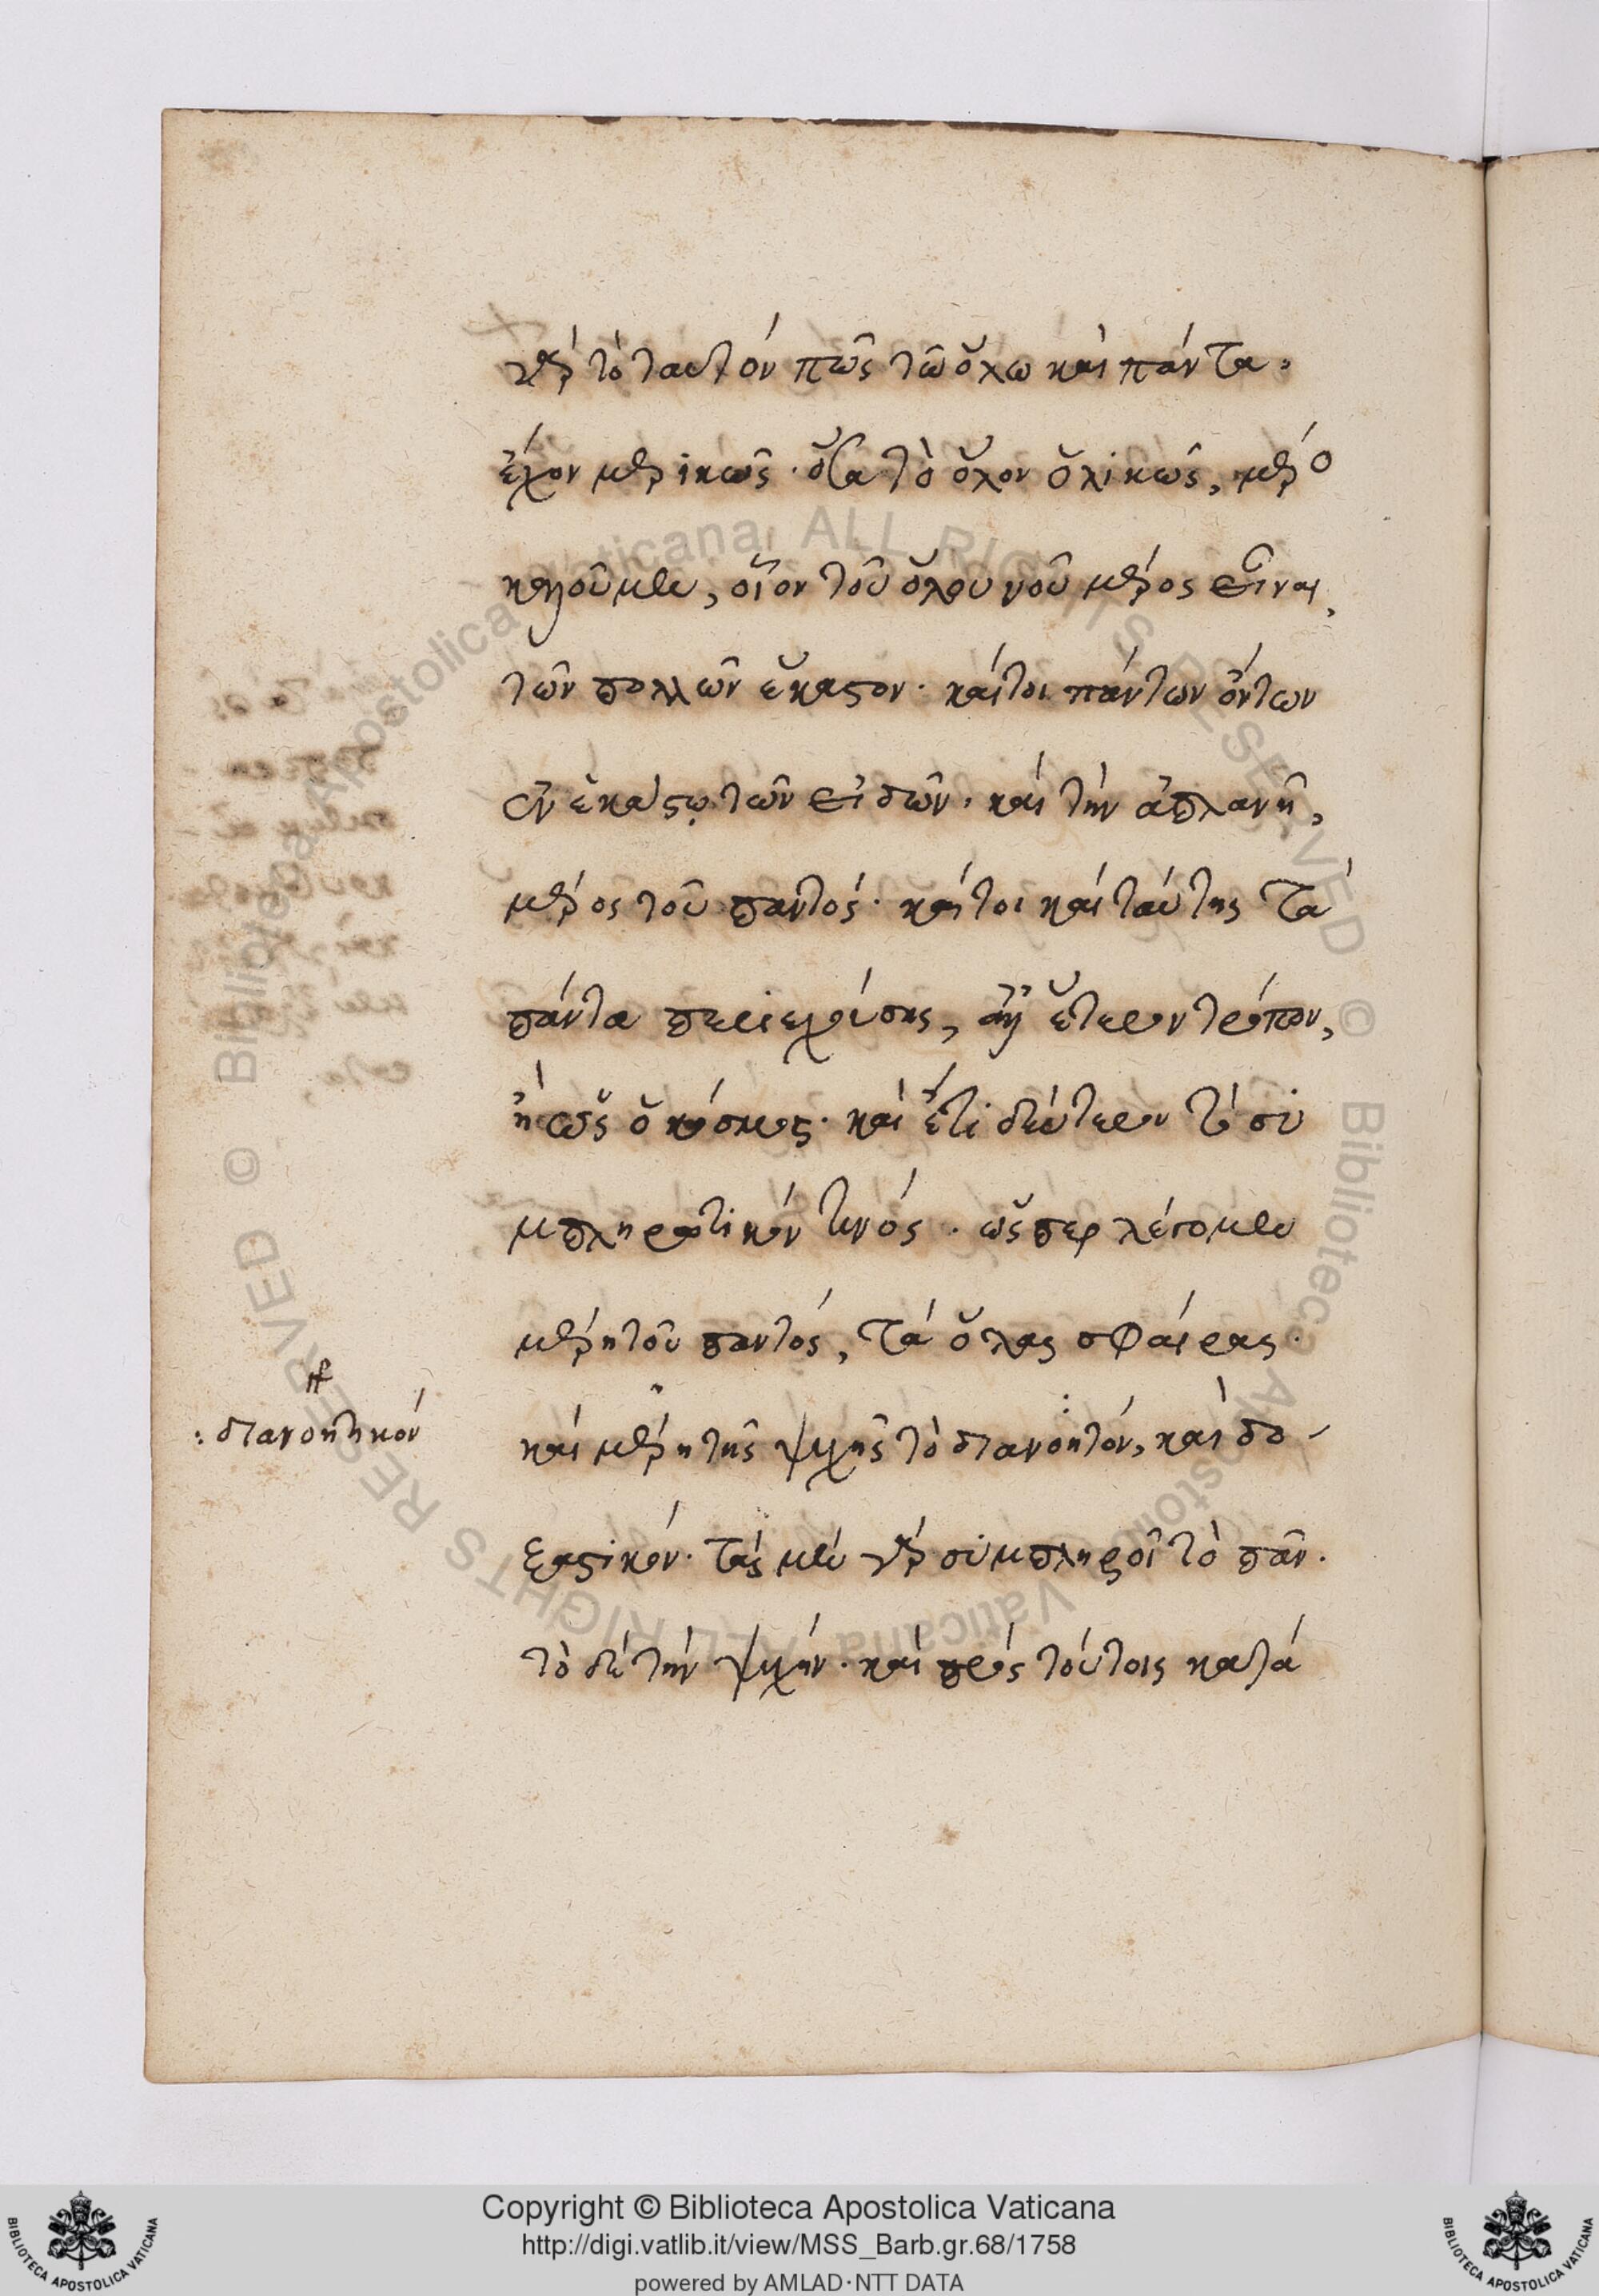 γὰρ τὸ ταυτόν πῶς τῶ ὅλω καὶ πάντα,
ἔχον μερικῶς· ὅσα τὸ ὅλον ὁλικῶς, μέρο
καλοῦμεν, οἷον τοῦ ὅλου νοῦ μέρος εἶναι,
τῶν πολλῶν ἕκαστον· καίτοι πάντων ὄντων
ἐν ἑκάστῳ τῶν εἰδῶν· καὶ τὴν ἀπλανῆ,
μέρος τοῦ παντός· καίτοι καὶ ταύτης τὰ
πάντα περιεχούσης, ἀλλ' ἕτερον τρόπον,
ἢ ὡς ὁ κόσμος· καὶ ἔτι δεύτερον τὸ συ
μπληρωτικόν τινός· ὥσπερ λέγομεν
μέρη τοῦ παντός, τὰ ὅλας σφαίρας·
καὶ μέρη τῆς ψυχῆς τὸ διανοητόν, καὶ δο-
ξαστικόν· τὰς μὲν γὰρ συμπληροῖ τὸ πᾶν·
τὸ δὲ τὴν ψυχήν· καὶ πρὸς τούτοις κατὰ
: διανοητικόν
Copyright © Biblioteca Apostolica Vaticana
http://digi.vatlib.it/view/MSS_Barb.gr.68/1758
powered by AMLAD·NTT DATA
BIBLIOTECA APOSTOLICA VATICANA
BIBLIOTECA APOSTOLICA VATICANA
© Biblioteca Apostolica Vaticana, ALL RIGHTS RESERVED
© Biblioteca Apostolica Vaticana, ALL RIGHTS RESERVED